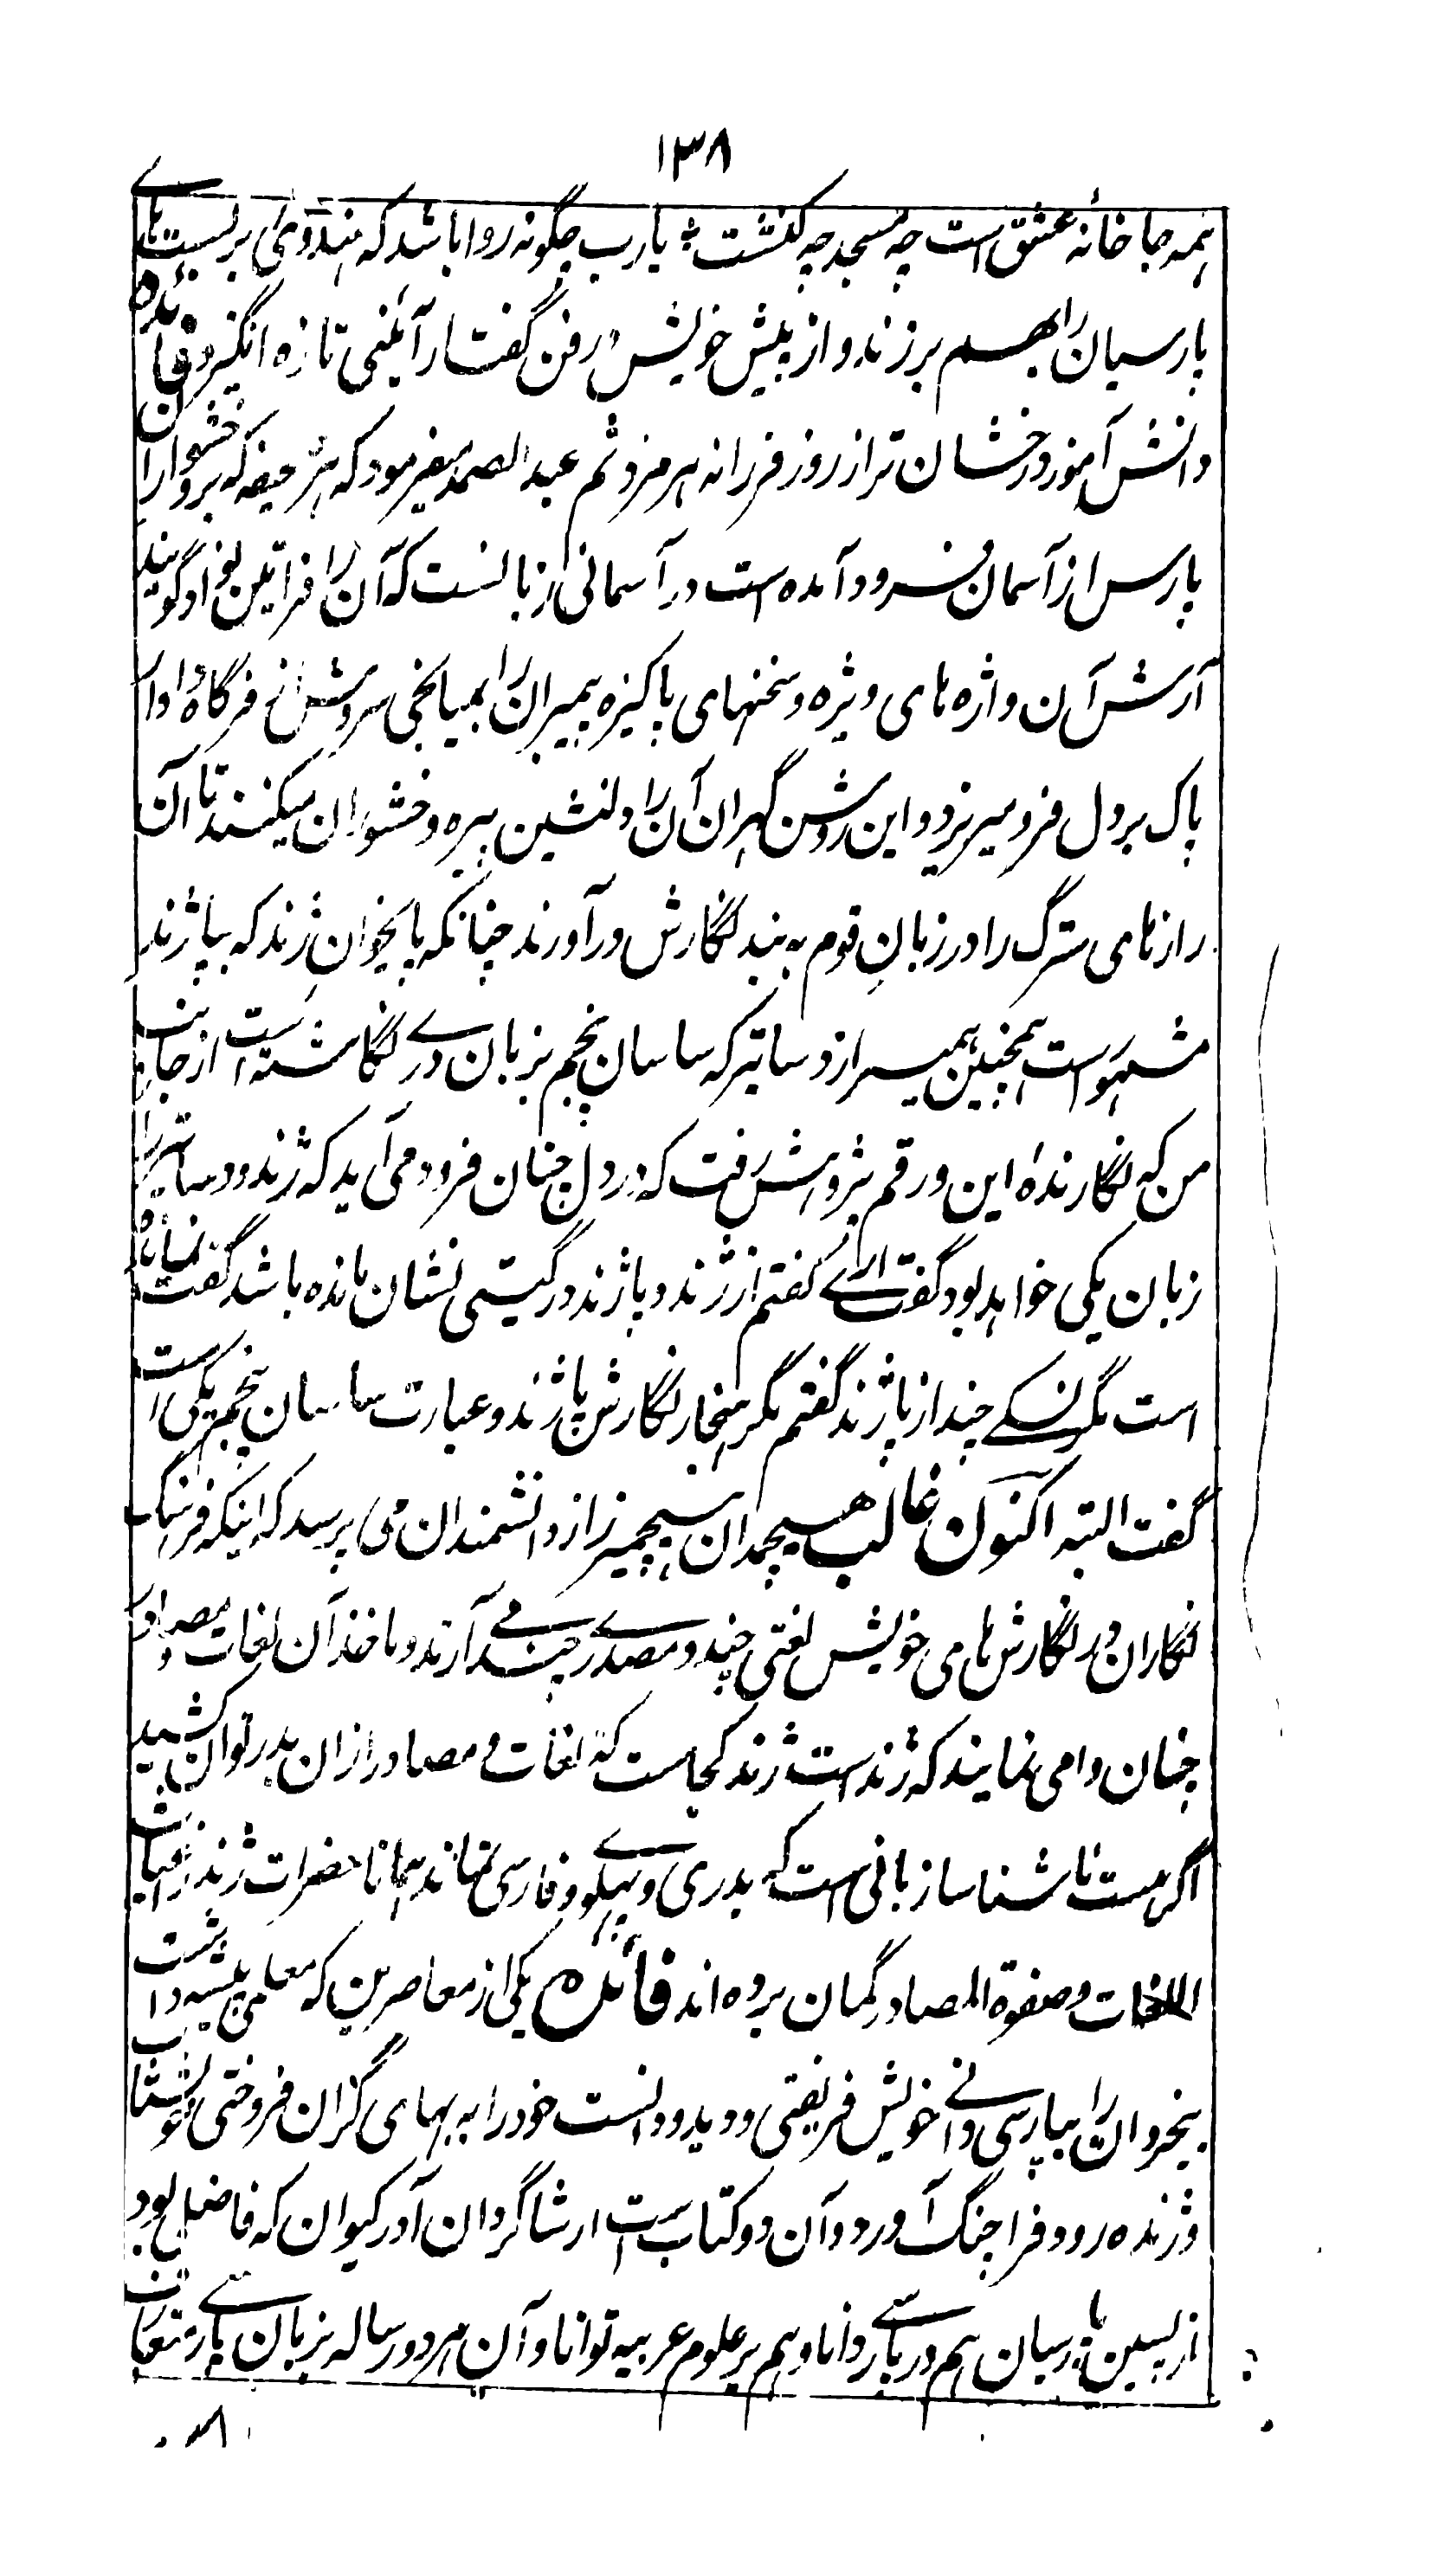 ۱۳۸
همه جا خانهٔ عشق است چه مسجد چه کنشت یا رب چگونه روا باشد که هندوی بربست های
پارسیان را بهم برزند و از پیش خویش در فن گفتار آئینی تازه انگیزد فائده
دانش آموز درخشان تر از روز فرزانه هرمزد ثم عبد الصمد میفرمود که هر صحیفه که بر وخشوران
پارس از آسمان فرود آمده است در آسمانی زبانست که آن را فراتین نواد گویند
آرش آن واژه های ویژه و سخنهای پاکیزه پیمبران را بمیانجی سروش فرگاه دادار
پاک بر دل فرو میریزد و این روشن گهران آن را دلنشین بیره وخشوران میکنند تا آن
رازهای سترگ را در زبان قوم به بند نگارش در آورند چنانکه پایخوان ژند که بپاژند
مشهور است همچنین همیراز دساتیر که ساسان پنجم بزبان دری نگاشته است از جانب
من که نگارندهٔ این ورقم پژوهش رفت که در دل چنان فرود می آید که ژند و دساتیر را
زبان یکی خواهد بود گفت آرے گفتم از ژند و پاژند در گیتی نشان مانده باشد گفت نمانده
است مگر نسکے چند از پاژند گفتم مگر هنجار نگارش پاژند و عبارت ساسان پنجم یکی است
گفت البته اکنون غالب هیچمدان هیچمیرز از دانشمندان می پرسد که اینکه فرهنگ
نگاران در نگارش های خویش لغتی چند و مصدرے چند مے آرند و ماخذ آن لغات و مصادر
چنان وامی نمایند که ژندست ژند کجاست که لغات و مصادر ازان بدر توان کشید
اگر هست ناشناسا زبانی است که بدری و پهلوے و فارسی نماند همانا حضرات ژند را غیاث
اللغات و صفوة المصادر گمان برده اند فائده یکی از معاصرین که معلمی پیشه داشت
بیخردان را بپارسی دانے خویش فریفتی و دید و دانست خود را به بهای گران فروختی
و ژنده رود فرا چنگ آورد و آن دو کتاب است از شاگردان آدر کیوان که فاضل بود
از پسین پارسیان هم در پارسے دانا و هم بر علوم عربیه توانا و آن هر دو رساله بزبان پارسے متعارف